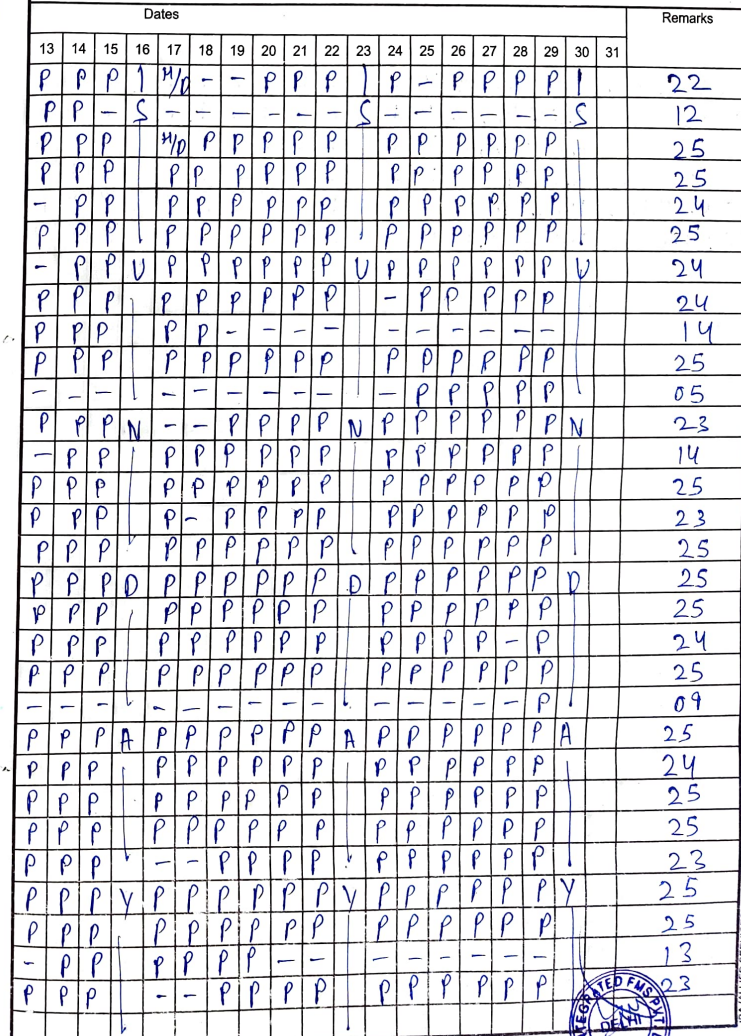 Dates Remarks
13 14 15 16 17 18 19 20 21 22 23 24 25 26 27 28 29 30 31
P P P | H/D - - P P P | P - P P P P | 22
P P - S - - - - - - S - - - - - - S 12
P P P H/D P P P P P P P P P P P 25
P P P P P P P P P P P P P P P 25
- P P P P P P P P P P P P P P 24
P P P P P P P P P P P P P P P 25
- P P U P P P P P P U P P P P P P U 24
P P P P P P P P P - P P P P P 24
P P P P P - - - - - - - - - - 14
P P P P P P P P P P P P P P P 25
- - - - - - - - - - P P P P P 05
P P P N - - P P P P N P P P P P P N 23
- P P P P P P P P P P P P P P 14
P P P P P P P P P P P P P P P 25
P P P P - P P P P P P P P P P 23
P P P P P P P P P P P P P P P 25
P P P D P P P P P P D P P P P P P D 25
P P P P P P P P P P P P P P P 25
P P P P P P P P P P P P P - P 24
P P P P P P P P P P P P P P P 25
- - - - - - - - - - - - - - P 09
P P P A P P P P P P A P P P P P P A 25
P P P P P P P P P P P P P P P 24
P P P P P P P P P P P P P P P 25
P P P P P P P P P P P P P P P 25
P P P - - P P P P P P P P P P 23
P P P Y P P P P P P Y P P P P P P Y 25
P P P P P P P P P P P P P P P 25
- P P P P P P - - - - - - - - 13
P P P - - P P P P P P P P P P 23
FMS PVT
DELHI